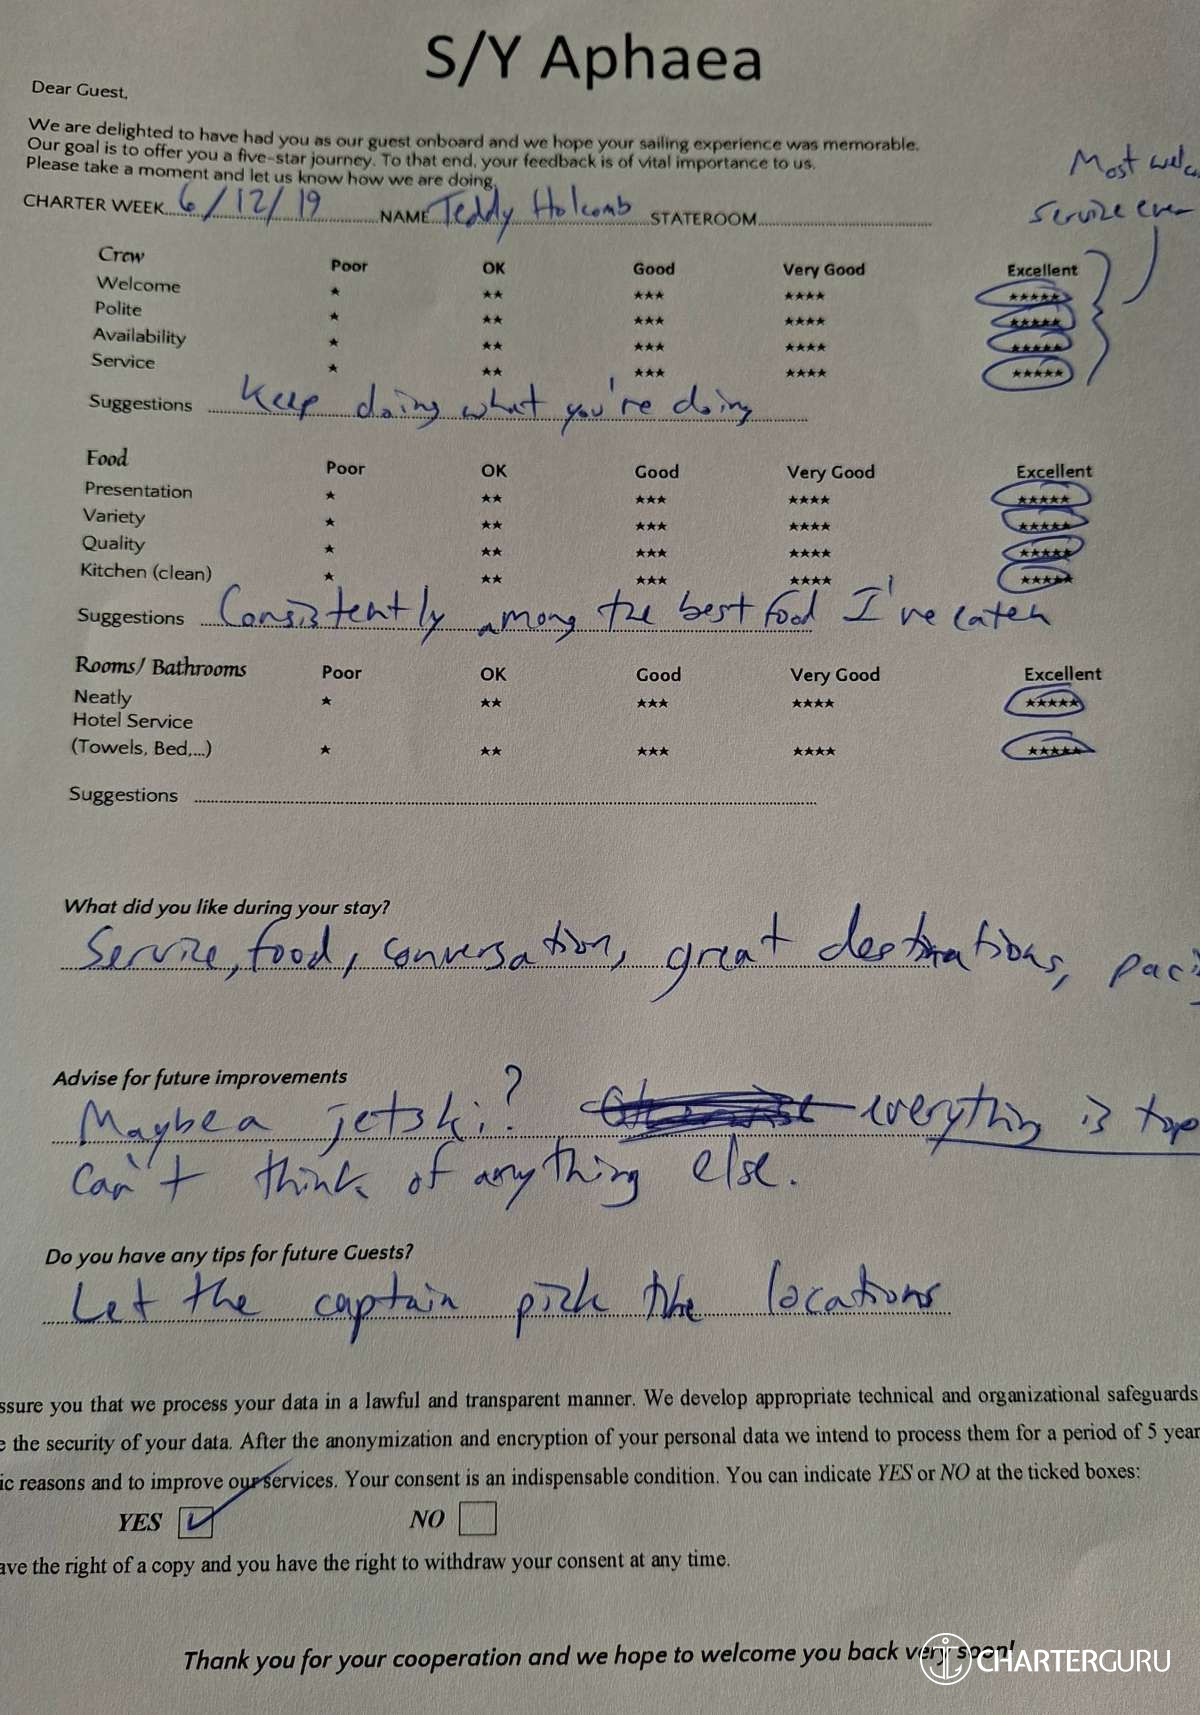 S/Y Aphaea
Dear Guest,
We are delighted to have had you as our guest onboard and we hope your sailing experience was memorable.
Our goal is to offer you a five-star journey. To that end, your feedback is of vital importance to us.
Please take a moment and let us know how we are doing.
Most
service ever
CHARTER WEEK 6/12/19 NAME Teddy Holcomb STATEROOM
Crew Poor OK Good Very Good Excellent
Welcome ★ ★★ ★★★ ★★★★ ★★★★★
Polite ★ ★★ ★★★ ★★★★ ★★★★★
Availability ★ ★★ ★★★ ★★★★ ★★★★★
Service ★ ★★ ★★★ ★★★★ ★★★★★
Suggestions Keep doing what you're doing
Food Poor OK Good Very Good Excellent
Presentation ★ ★★ ★★★ ★★★★ ★★★★★
Variety ★ ★★ ★★★ ★★★★ ★★★★★
Quality ★ ★★ ★★★ ★★★★ ★★★★★
Kitchen (clean) ★ ★★ ★★★ ★★★★ ★★★★★
Suggestions Consistently among the best food I've eaten
Rooms/ Bathrooms Poor OK Good Very Good Excellent
Neatly ★ ★★ ★★★ ★★★★ ★★★★★
Hotel Service
(Towels, Bed,...) ★ ★★ ★★★ ★★★★ ★★★★★
Suggestions
What did you like during your stay?
Service, food, conversation, great destinations,
Advise for future improvements
Maybe a jetski? everything is top
can't think of anything else.
Do you have any tips for future Guests?
Let the captain pick the locations
ssure you that we process your data in a lawful and transparent manner. We develop appropriate technical and organizational safeguards
e the security of your data. After the anonymization and encryption of your personal data we intend to process them for a period of 5 year
ic reasons and to improve our services. Your consent is an indispensable condition. You can indicate YES or NO at the ticked boxes:
YES NO
ave the right of a copy and you have the right to withdraw your consent at any time.
Thank you for your cooperation and we hope to welcome you back very soon!
CHARTERGURU